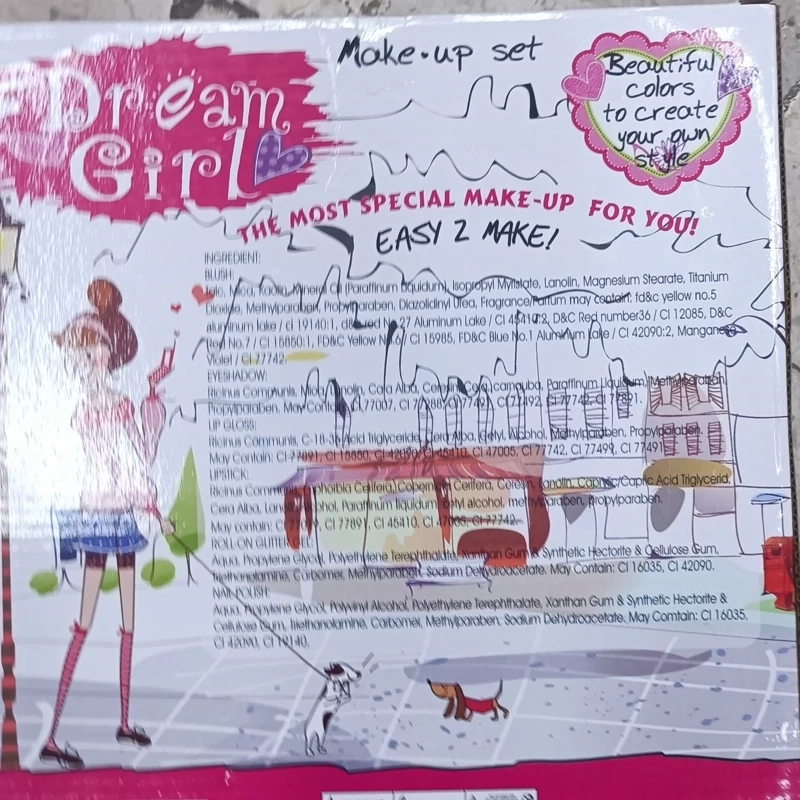 Dream
Girl
Make-up set
Beautiful
colors
to create
your own
style
THE MOST SPECIAL MAKE-UP FOR YOU!
EASY 2 MAKE!
INGREDIENT:
BLUSH:
Mica, Kaolin, Mineral Oil (Paraffinum Liquidum), Isopropyl Myristate, Lanolin, Magnesium Stearate, Titanium
Dioxide, Methylparaben, Propylparaben, Diazolidinyl Urea, Fragrance/Parfum may contain: fd&c yellow no.5
aluminum lake / ci 19140:1, 27 Aluminum Lake / CI D&C Red number36 / CI 12085, D&C
Red No.7 / CI 15850:1, FD&C Yellow / CI 15985, FD&C Blue No.1 Aluminum Lake / CI 42090:2, Manganese
Violet / CI 77742.
EYESHADOW:
Ricinus Communis, Lanolin, Alba, carnauba, Paraffinum Liquidum, Methylparaben,
Propylparaben. May CI 77007, CI
LIP GLOSS:
Ricinus Communis, Acid Triglyceride, Cera Alba, Cetyl, Alcohol, Methylparaben, Propylparaben.
May Contain: CI 77891, CI 15850, CI 42090, CI 45410, CI 47005, CI 77742, CI 77499, CI 77491
LIPSTICK:
Ricinus Cerifera, Ceresin, Lanolin, Caprylic/Capric Acid Triglycerid,
Cera Alba, Paraffinum liquidum, Cetyl alcohol, methylparaben, propylparaben.
May contain: CI 77891, CI 45410, CI 47005, CI 77742.
ROLL-ON GLITTER GEL:
Aqua, Propylene Glycol, Polyethylene Terephthalate, Xanthan Gum & Synthetic Hectorite & Cellulose Gum,
Triethanolamine, Carbomer, Methylparaben, Sodium Dehydroacetate. May Contain: CI 16035, CI 42090.
NAIL POLISH:
Aqua, Propylene Glycol, Polyvinyl Alcohol, Polyethylene Terephthalate, Xanthan Gum & Synthetic Hectorite &
Cellulose Gum, Triethanolamine, Carbomer, Methylparaben, Sodium Dehydroacetate. May Comtain: CI 16035,
CI 42090, CI 19140.